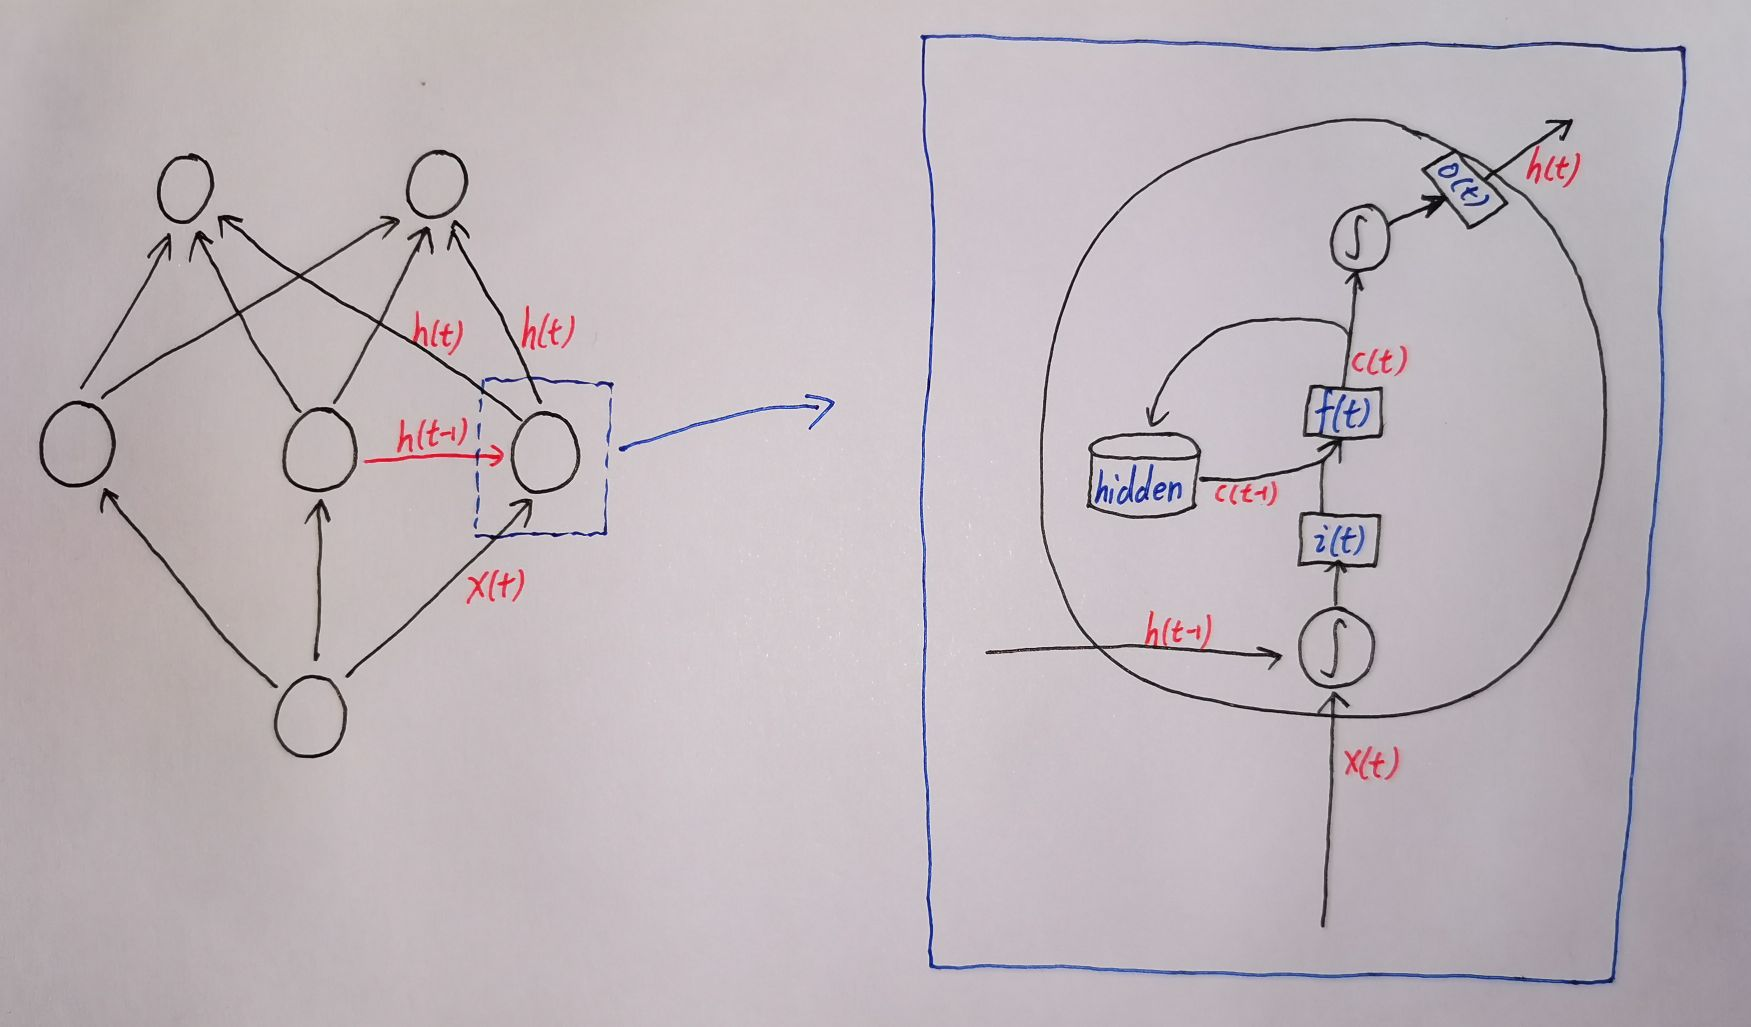 h(t)
h(t)
h(t-1)
X(t)
h(t)
o(t)
∫
c(t)
f(t)
hidden
c(t-1)
i(t)
h(t-1)
∫
X(t)